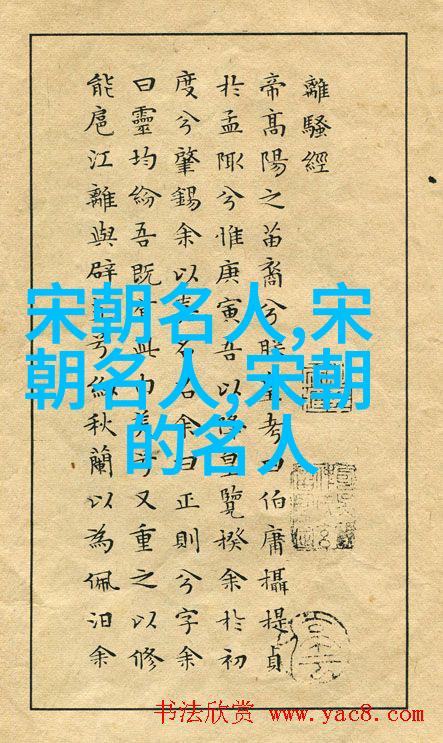 離騷經
帝高陽之苗裔兮朕考曰伯庸攝提貞
於孟陬兮惟庚寅吾以降皇覽揆余於初
度兮肇錫余以嘉名名余曰正則兮字余
曰靈均紛吾既有此內美兮又重之以修
能扈江離與辟兮紉秋蘭以為佩汨余
宋朝名人,宋
朝名人,宋朝
的名人
书法欣赏 www.yac8.com